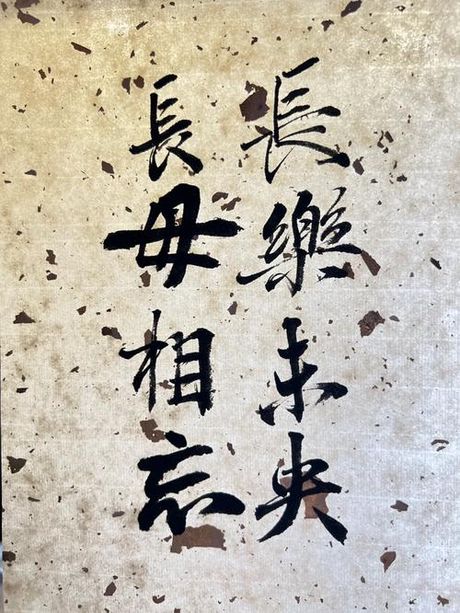 長樂未央
長毋相忘